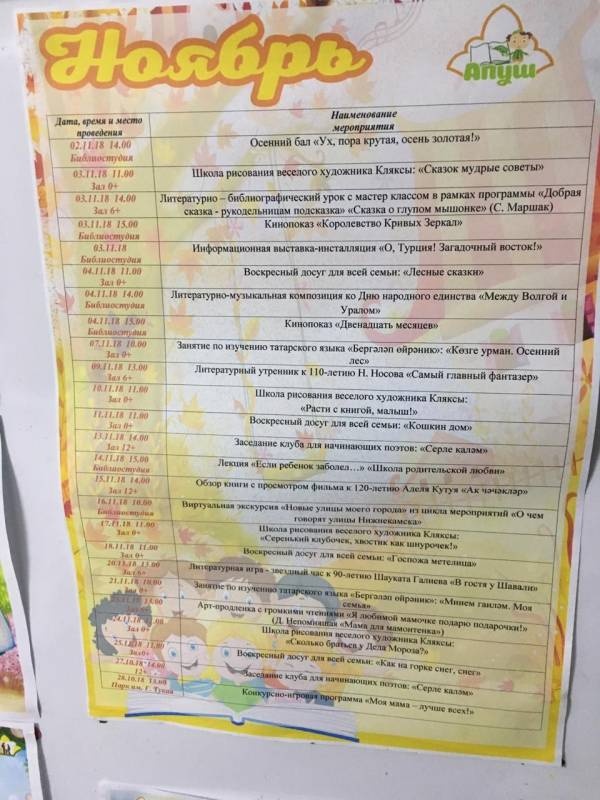 Ноябрь
Апуш
Дата, время и место проведения
Наименование мероприятия
02.11.18 14.00
Библиостудия
Осенний бал «Ух, пора крутая, осень золотая!»
03.11.18 11.00
Зал 0+
Школа рисования веселого художника Кляксы: «Сказок мудрые советы»
03.11.18 14.00
Зал 6+
Литературно – библиографический урок с мастер классом в рамках программы «Добрая
сказка - рукодельницам подсказка» «Сказка о глупом мышонке» (С. Маршак)
03.11.18 15.00
Библиостудия
Кинопоказ «Королевство Кривых Зеркал»
03.11.18
Библиостудия
Информационная выставка-инсталляция «О, Турция! Загадочный восток!»
04.11.18 11.00
Зал 0+
Воскресный досуг для всей семьи: «Лесные сказки»
04.11.18 14.00
Библиостудия
Литературно-музыкальная композиция ко Дню народного единства «Между Волгой и
Уралом»
04.11.18 15.00
Библиостудия
Кинопоказ «Двенадцать месяцев»
07.11.18 10.00
Зал 0+
Занятие по изучению татарского языка «Бергәләп өйрәник»: «Көзге урман. Осенний
лес»
09.11.18 13.00
Зал 6+
Литературный утренник к 110-летию Н. Носова «Самый главный фантазер»
10.11.18 11.00
Зал 0+
Школа рисования веселого художника Кляксы:
«Расти с книгой, малыш!»
11.11.18 11.00
Зал 0+
Воскресный досуг для всей семьи: «Кошкин дом»
13.11.18 14.00
Зал 12+
Заседание клуба для начинающих поэтов: «Серле каләм»
14.11.18 15.00
Библиостудия
Лекция «Если ребенок заболел…» «Школа родительской любви»
15.11.18 14.00
Зал 12+
Обзор книги с просмотром фильма к 120-летию Аделя Кутуя «Ак чәчәкләр»
16.11.18 10.00
Библиостудия
Виртуальная экскурсия «Новые улицы моего города» из цикла мероприятий «О чем
говорят улицы Нижнекамска»
17.11.18 11.00
Зал 0+
Школа рисования веселого художника Кляксы:
«Серенький клубочек, хвостик как шнурочек!»
18.11.18 11.00
Зал 0+
Воскресный досуг для всей семьи: «Госпожа метелица»
20.11.18 13.00
Зал 6+
Литературная игра - звездный час к 90-летию Шауката Галиева «В гостя у Шавали»
21.11.18 10.00
Зал 0+
Занятие по изучению татарского языка «Бергәләп өйрәник»: «Минем гаиләм. Моя
семья»
13.00
Арт-продленка с громкими чтениями «Я любимой мамочке подарю подарочки!»
(Д. Непомнящая «Мама для мамонтенка»)
24.11.18 11.00
Зал 0+
Школа рисования веселого художника Кляксы:
«Сколько братьев у Деда Мороза?»
25.11.18 11.00
Зал0+
Воскресный досуг для всей семьи: «Как на горке снег, снег»
27.10.18 14.00
12+
Заседание клуба для начинающих поэтов: «Серле каләм»
28.10.18 13.00
Парк им. Г. Тукая
Конкурсно-игровая программа «Моя мама – лучше всех!»